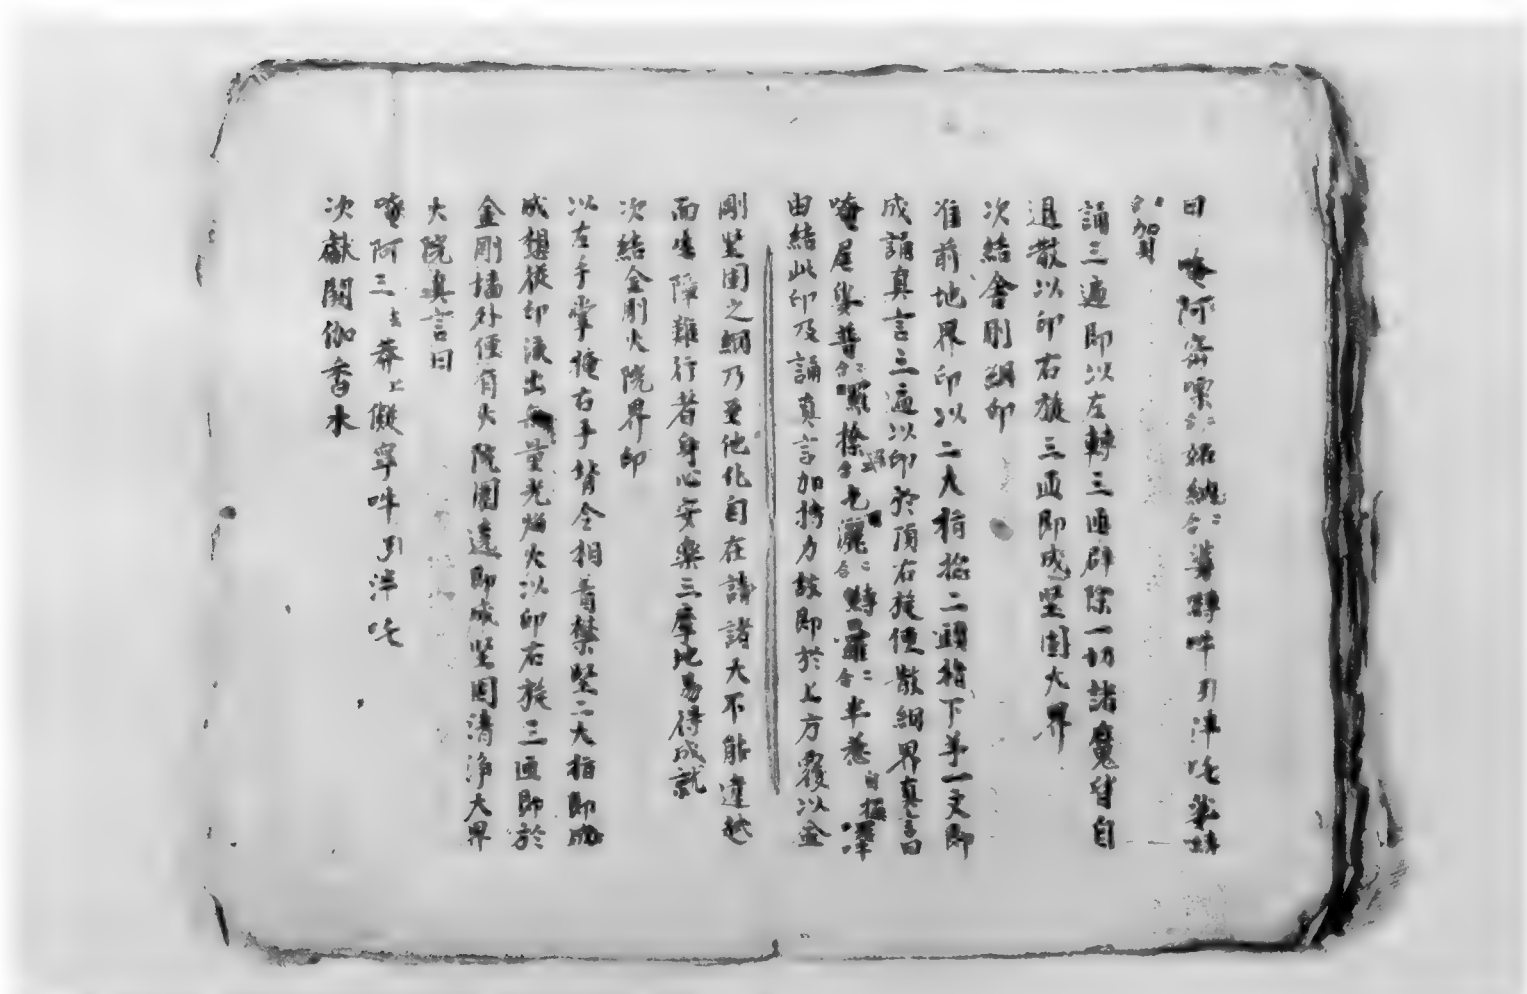 曰 唵阿密㗚二合妬納二合婆嚩吽引泮吒娑嚩
二合賀
誦三遍即以左轉三匝辟除一切諸魔皆自
退散以印右旋三匝即成堅固大界
次結金剛網印
准前地界印以二大指捻二頭指下第一文即
成誦真言三遍以印於頂右旋便散網界真言曰
唵尾娑普二合羅捺二合囉乞灑二合嚩羅二合半惹自攞吽
由結此印及誦真言加持力故即於上方覆以金
剛堅固之網乃至他化自在諸天不能違越
而為障難行者身心安樂三摩地易得成就
次結金剛火院界印
以左手掌掩右手背令相著橫竪二大指即成
成想從印流出無量光焰火以印右旋三匝即於
金剛墻外便有火院圍遶即成堅固清淨大界
火院真言曰
唵阿三去莽上儗寧吽引泮吒
次獻閼伽香水